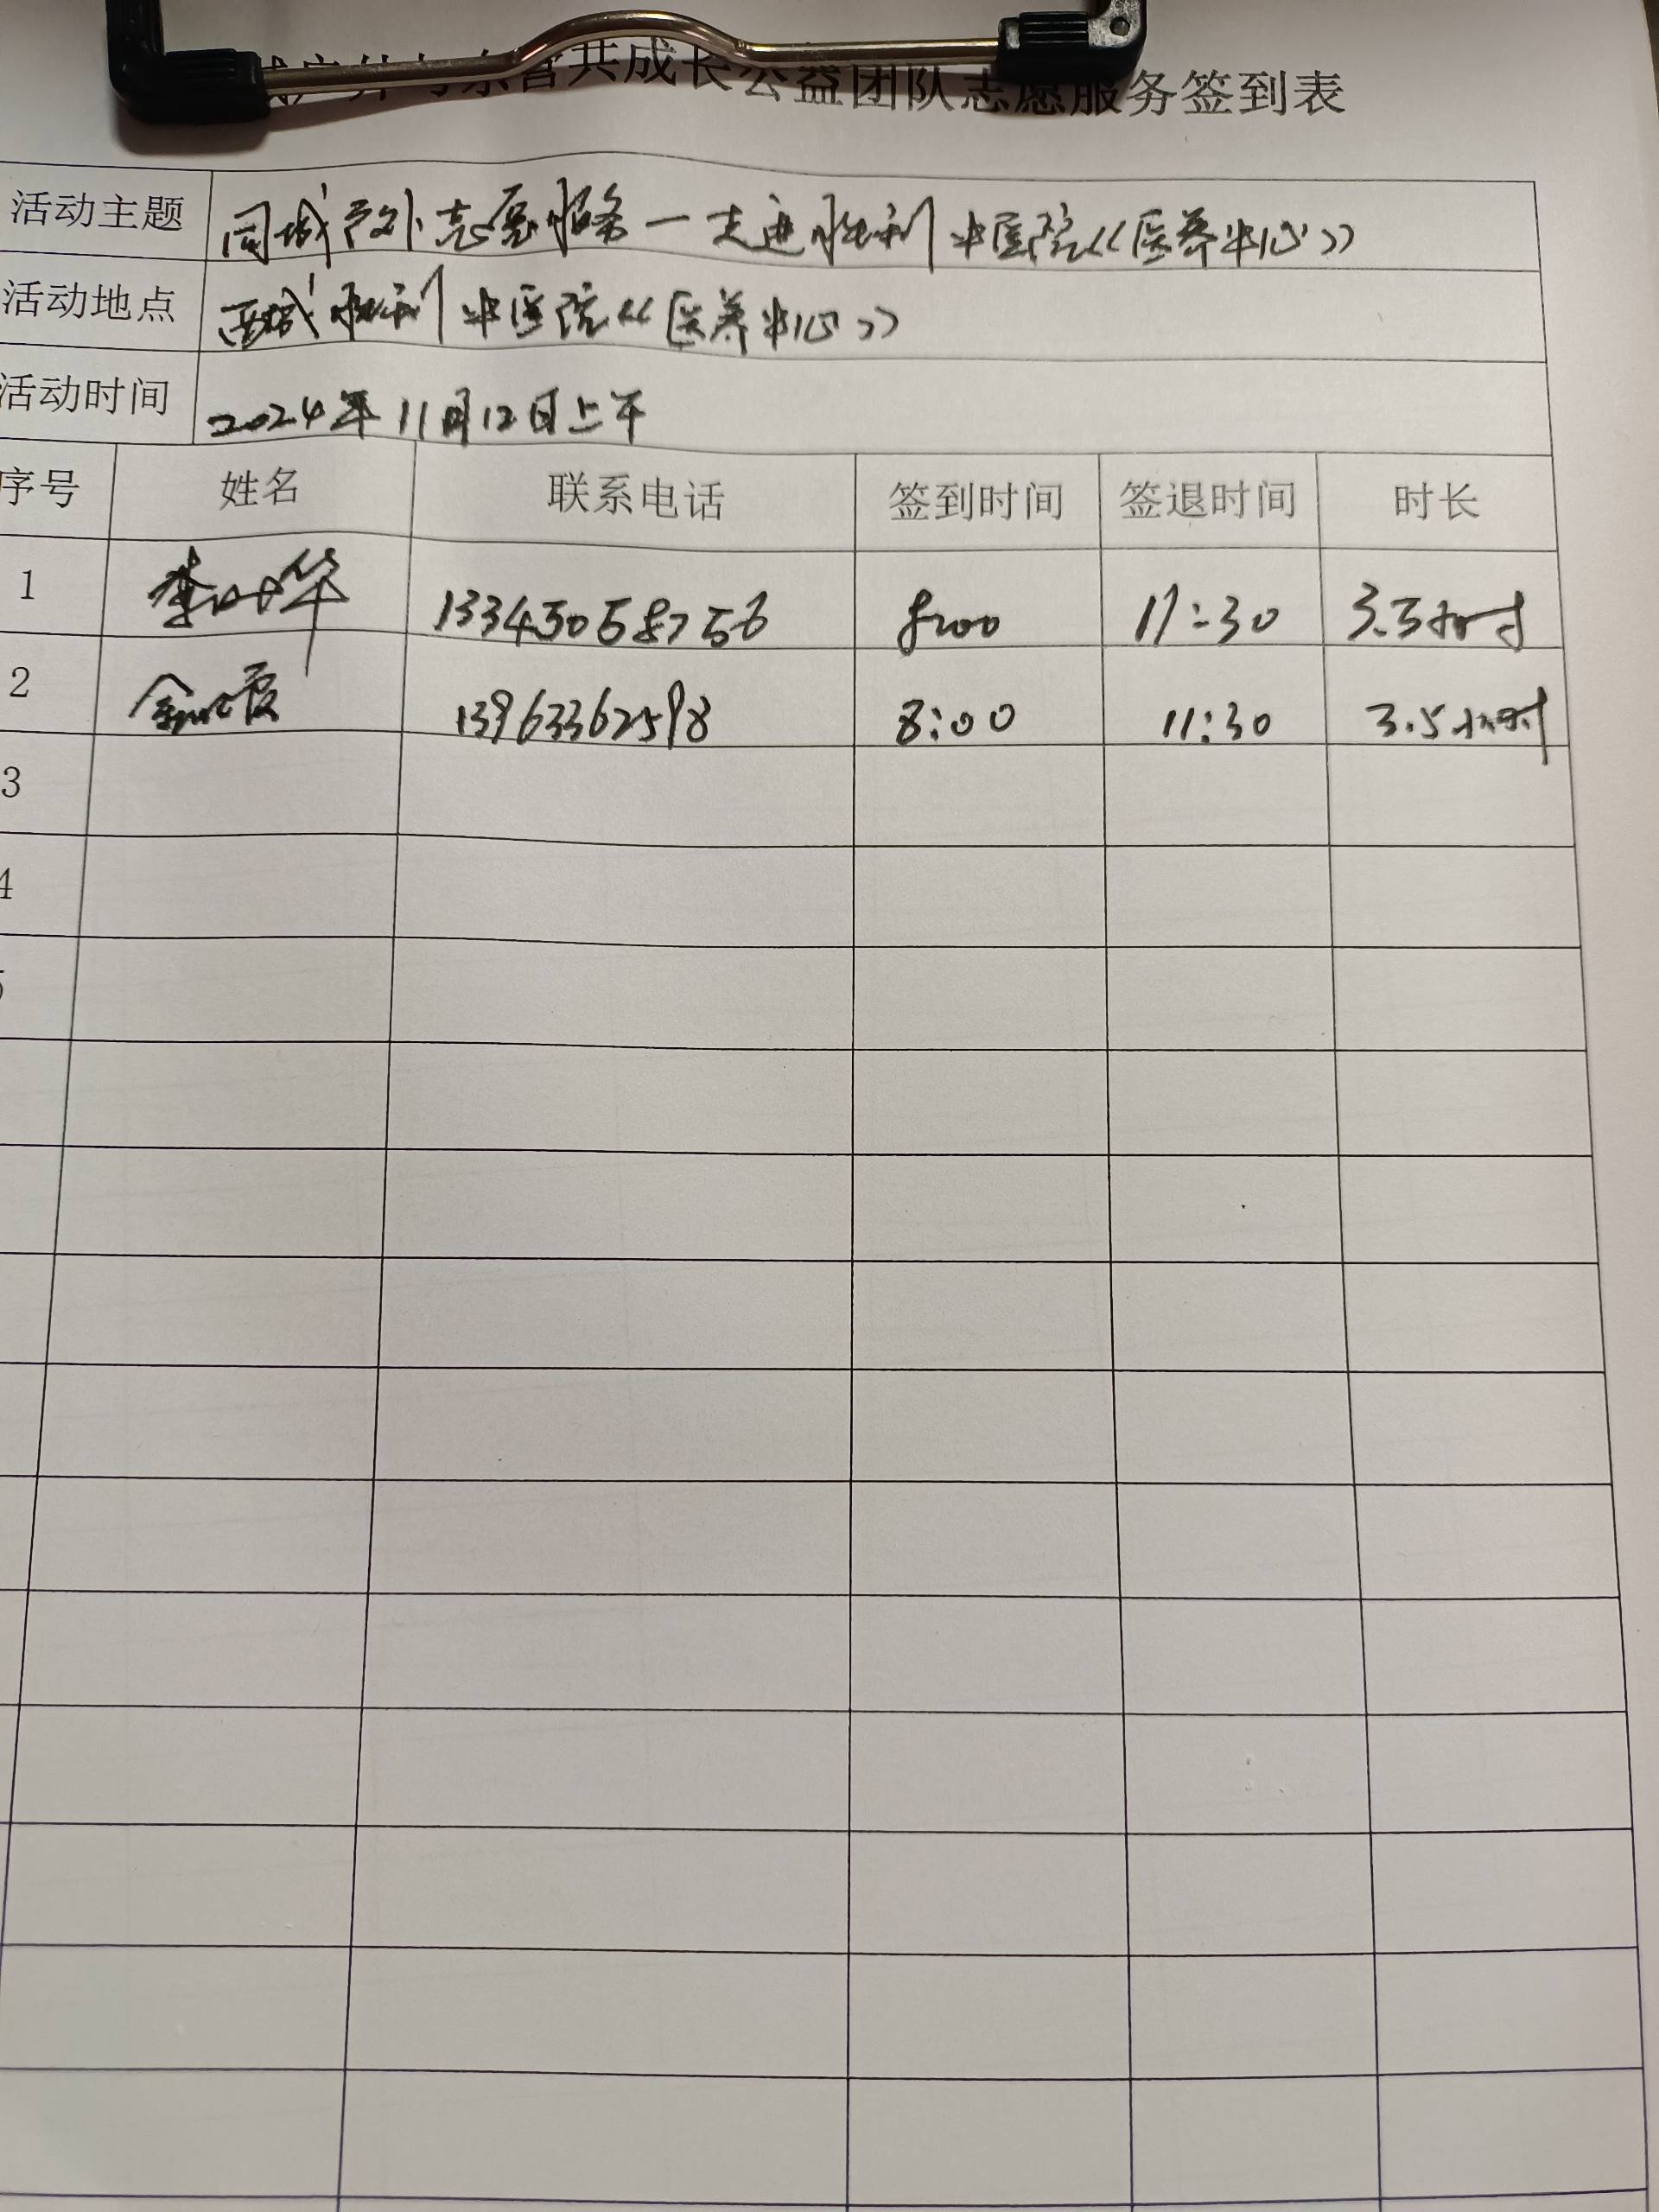 共成长公益团队志愿服务签到表
活动主题 同城户外志愿服务一走进胜利中医院《医养中心》
活动地点 西城胜利中医院《医养中心》
活动时间 2024年11月12日上午
序号 姓名 联系电话 签到时间 签退时间 时长
1 李 华 13345058756 8:00 11:30 3.5小时
2 金 霞 13963362598 8:00 11:30 3.5小时
3
4
5